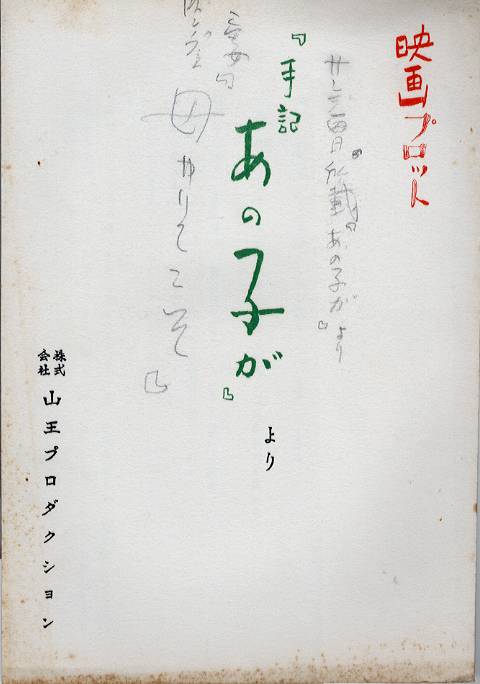 映画プロット
掲載の『あの子が』より
『手記
あの子が』
より
母ありてこそ』
株式
会社
山王プロダクション